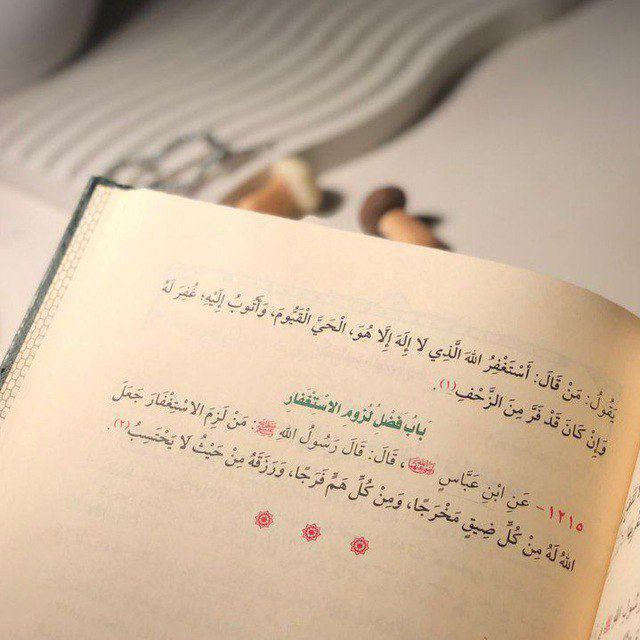 يَقُولُ: مَنْ قَالَ: أَسْتَغْفِرُ اللهَ الَّذِي لَا إِلَهَ إِلَّا هُوَ، الْحَيَّ الْقَيُّومَ، وَأَتُوبُ إِلَيْهِ؛ غُفِرَ لَهُ
وَإِنْ كَانَ قَدْ فَرَّ مِنَ الزَّحْفِ(١).
بَابُ فَضْلُ لُزُومِ الِاسْتِغْفَارِ
١٢١٥- عَنِ ابْنِ عَبَّاسٍ ﵄، قَالَ: قَالَ رَسُولُ اللهِ ﷺ: مَنْ لَزِمَ الِاسْتِغْفَارَ جَعَلَ
اللهُ لَهُ مِنْ كُلِّ ضِيقٍ مَخْرَجًا، وَمِنْ كُلِّ هَمٍّ فَرَجًا، وَرَزَقَهُ مِنْ حَيْثُ لَا يَحْتَسِبُ(٢).